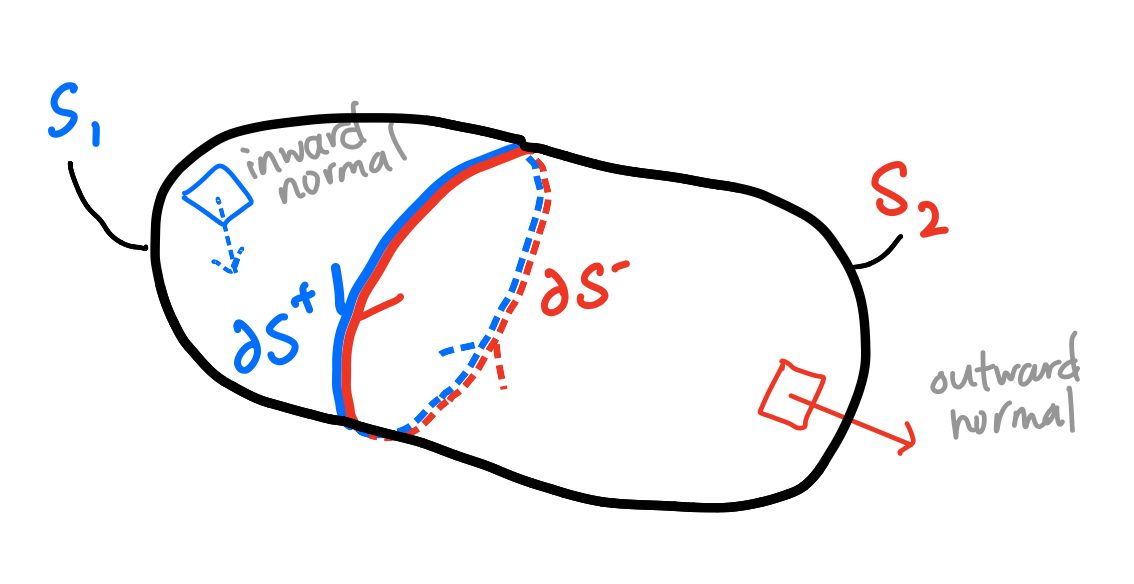 S₁
inward
normal
S₂
∂S⁺
∂S⁻
outward
normal